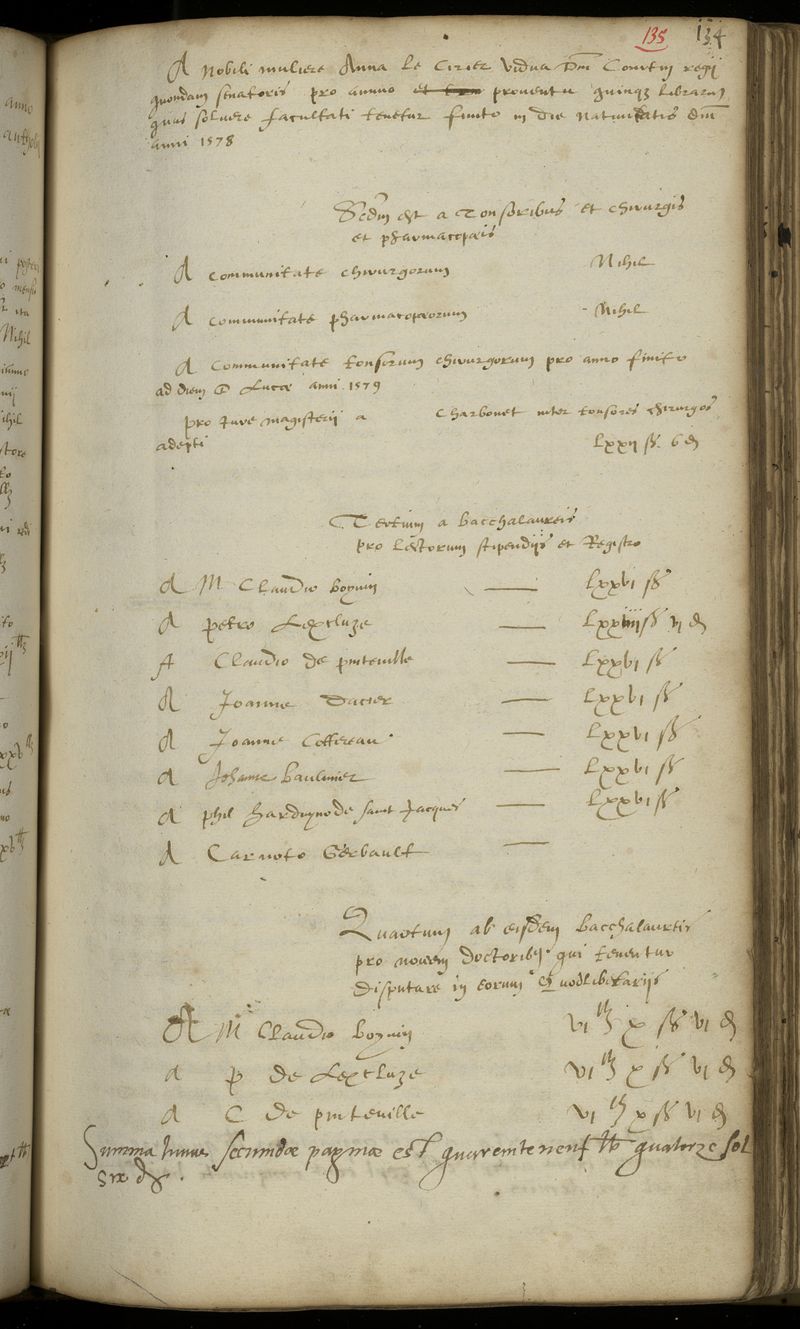 135 134
A Nobili muliere Anna Le Cirier vidua
quondam senatoris pro annuo proventu quinq3 librarum
quas solvere facultati tenetur finito in die nativitatis dni
anni 1578
Sedm est a Tonsoribus et chirurgis
et pharmacopeis
A communitate chirurgorum Nihil
A communitate pharmacopeorum Nihil
A communitate tonsorum chirurgorum pro anno finito
ad diem Lucae anni 1579
pro Jure magisterii a Charbonet inter tonsores chirurgos
adepti Lxxii ss 6 d
Tertium a Bacchalaureis
pro Lectorum stipendijs et Registro
A M Claudio Boyvin Lxxvi ss
A petro Lexcluze Lxxiiii ss vi d
A Claudio de pinteville Lxxvi ss
A Joanne Dacier Lxxvi ss
A Joanne Coffereau Lxxvi ss
A Johanne Baulinier Lxxvi ss
A phil harduyno de saint Jacques Lxxvi ss
A Carnoto Gerbault
Quartum ab eisdem Bacchalaureis
pro novem doctoribq qui tenentur
disputare in eorum quodlibetarijs
A M Claudio Boyvin vi lb x ss vi d
A p de Lexcluze vi lb x ss vi d
A C de pinteville vi lb x ss vi d
Summa hujus secundae paginae est quarente neuf lb quatorze sol
six d